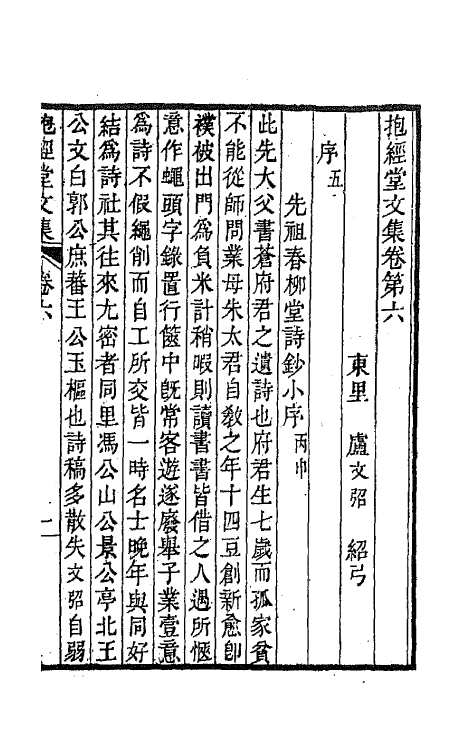 抱經堂文集卷第六
東里 盧文弨 紹弓
序五
先祖春柳堂詩鈔小序丙申
此先大父書蒼府君之遺詩也府君生七歲而孤家貧
不能從師問業母朱太君自敎之年十四豆創新愈卽
襆被出門爲負米計稍暇則讀書書皆借之人遇所愜
意作蠅頭字錄置行篋中旣常客遊遂廢舉子業壹意
爲詩不假繩削而自工所交皆一時名士晚年與同好
結爲詩社其往來尢密者同里馮公山公景公亭北王
公文白郭公庶蕃王公玉樞也詩稿多散失文弨自弱
抱經堂文集 卷六 一